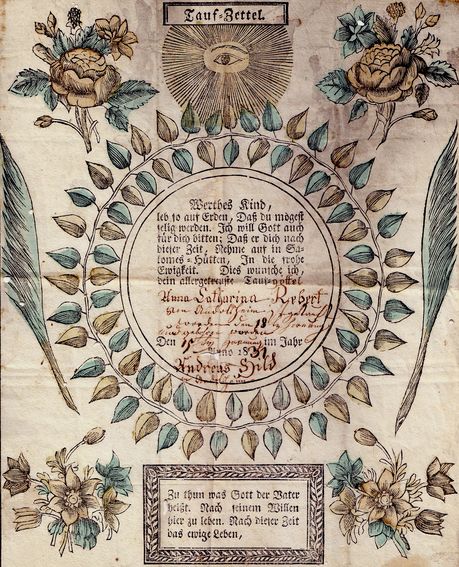 Tauf-Zettel.
Werthes Kind,
leb so auf Erden, Daß du mögest
selig werden. Ich will Gott auch
für dich bitten; Daß er dich nach
dieser Zeit, Nehme auf in Sa-
lomes-Hütten, In die frohe
Ewigkeit. Dies wünsche ich,
dein allergetreuste Tauf
Anna Catharina
von
Den im Jahr
Anno 18
Andreas Hild
Zu thun was Gott der Vater
heizt. Nach seinem Willen
hier zu leben. Nach dieser Zeit
das ewige Leben,